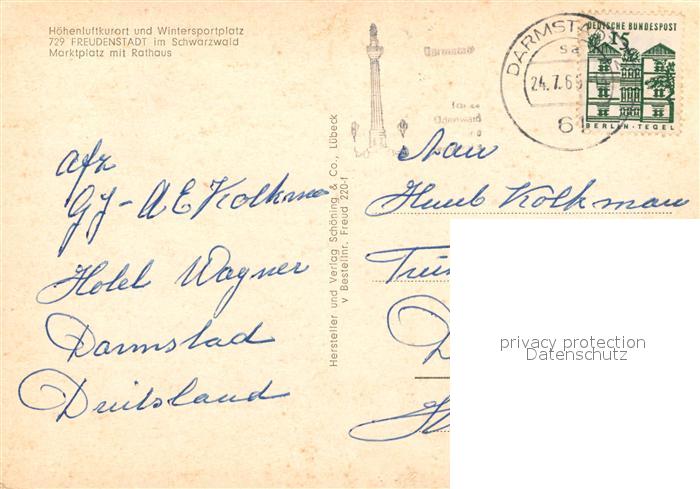 Höhenluftkurort und Wintersportplatz
729 FREUDENSTADT im Schwarzwald
Marktplatz mit Rathaus
DEUTSCHE BUNDESPOST
15
BERLIN-TEGEL
DARMSTADT
24.7.69
61
Odenwald
Hersteller und Verlag Schöning & Co., Lübeck
v Bestellnr. Freud 220-f
afz
GJ-AE Kolkman
Hotel Wagner
Darmstad
Duitsland
Aan
Huub Kolkman
privacy protection
Datenschutz